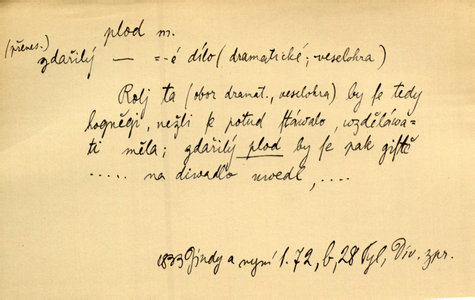 plod m.
(přenes.)
zdařilý — =-é dílo (dramatické; veselohra)
Rolj ta (obor dramat., veselohra) by se tedy
hogněgi, nežli se potud stáwalo, wzděláwa-
ti měla; zdařilý plod by se pak gistě
..... na diwadlo uwedl, ....
1833 Jindy a nynj 1.72, b, 28 Tyl, Div. zpr.